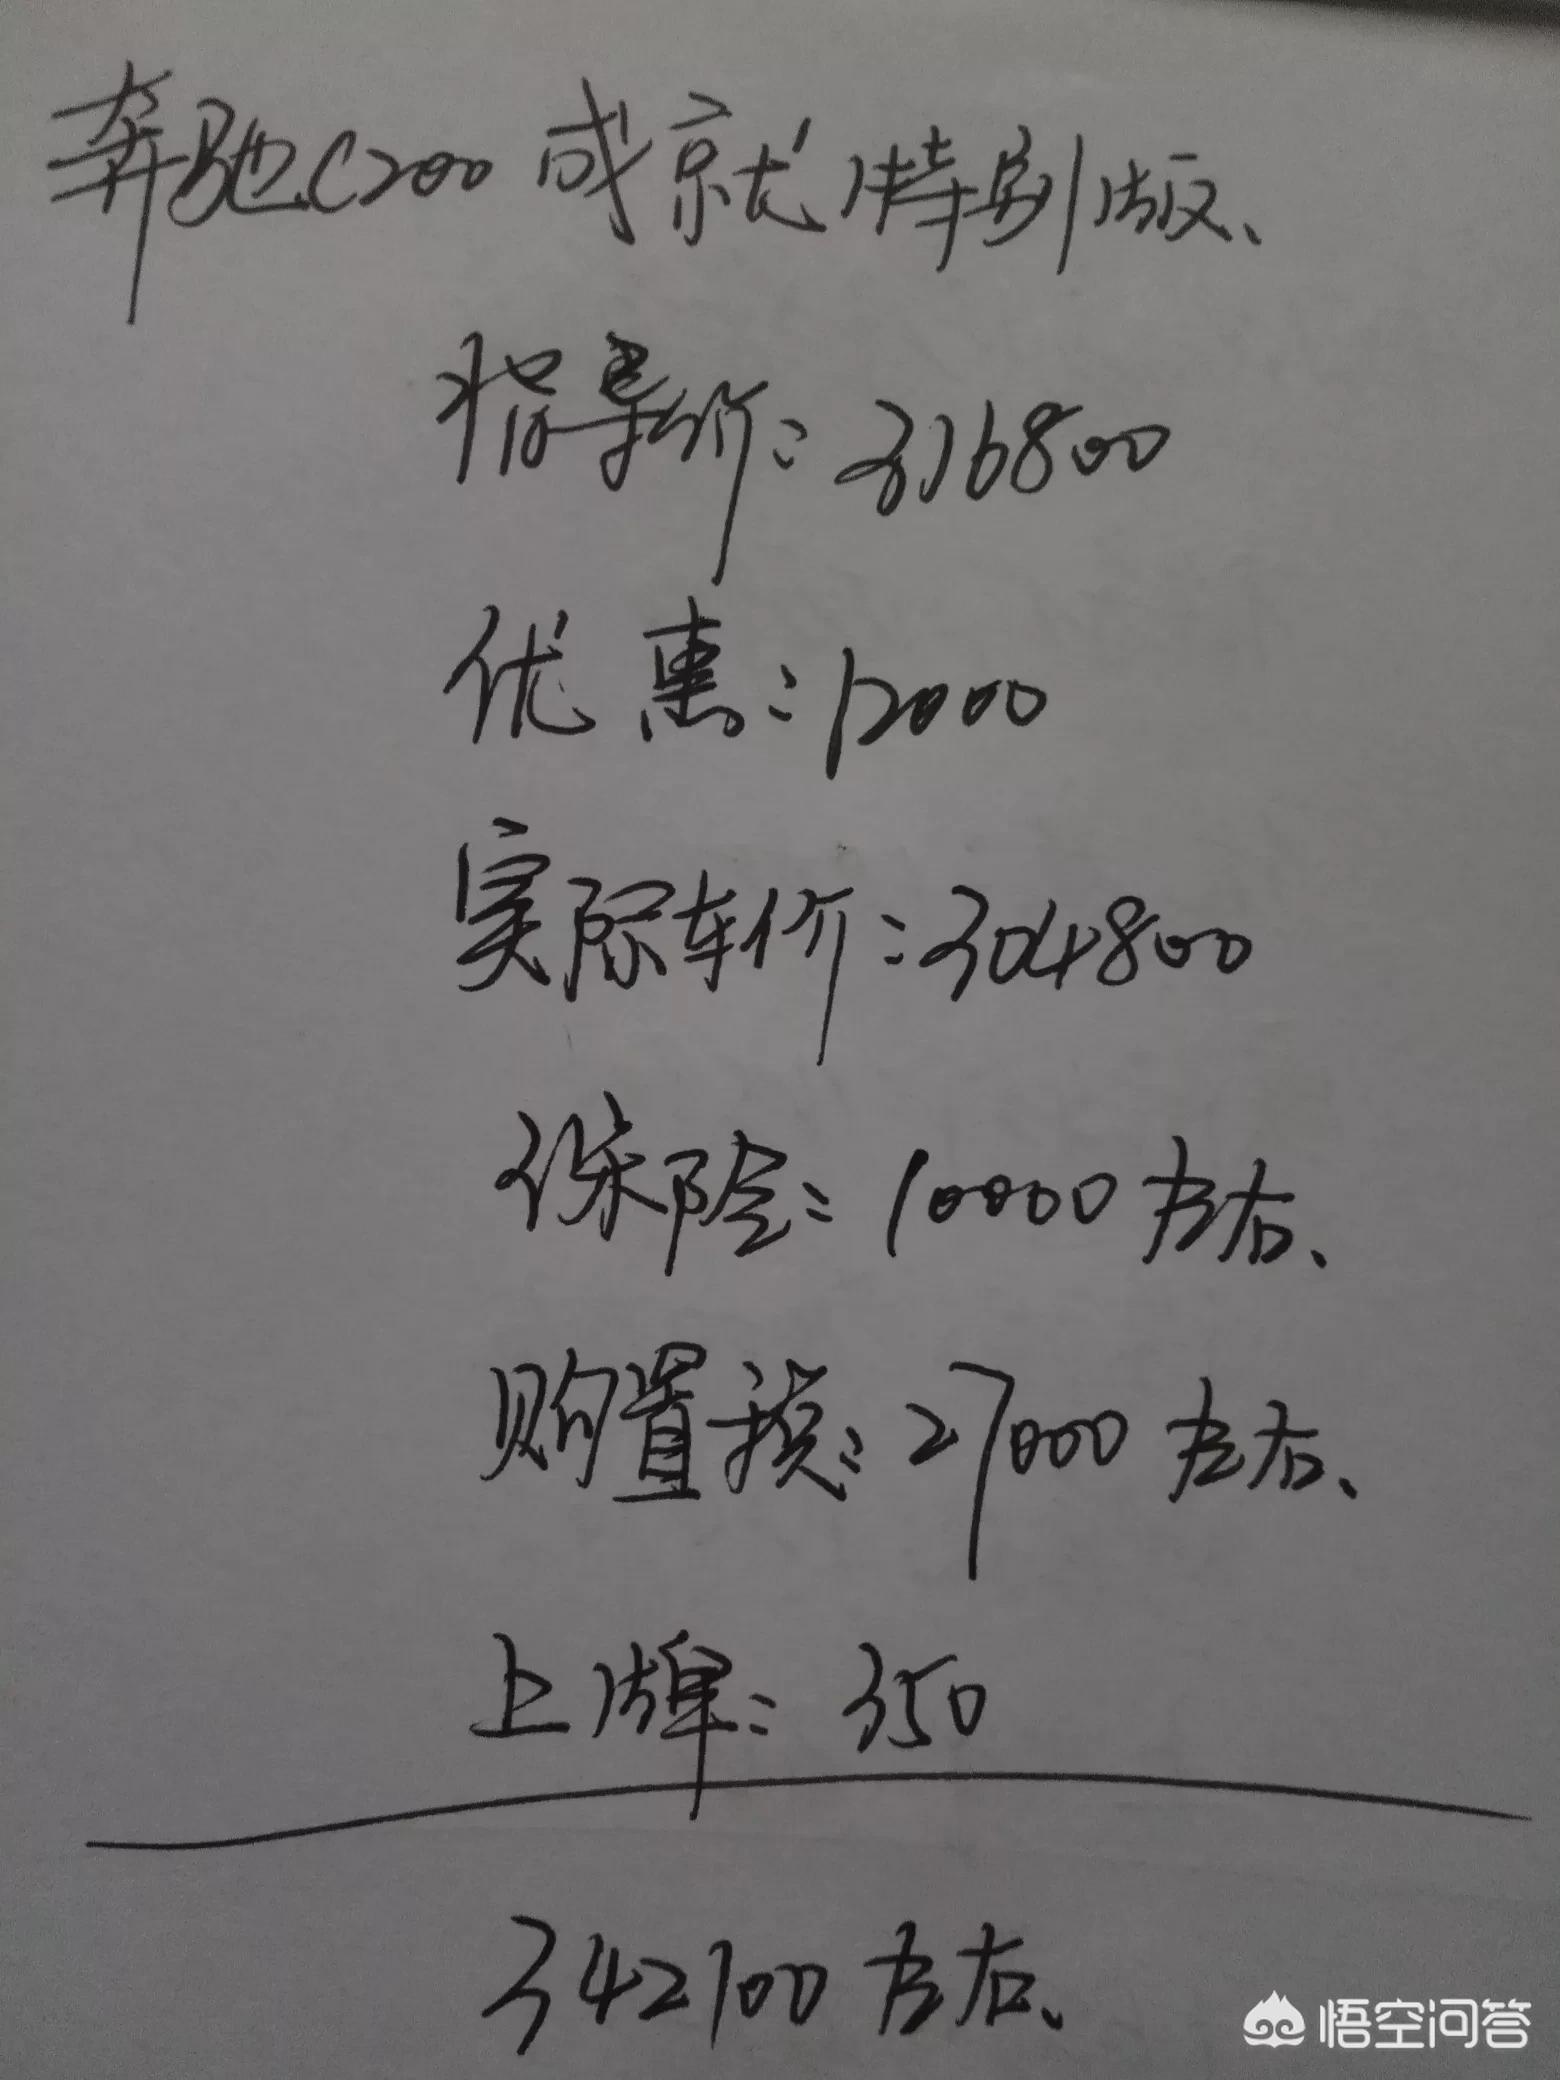 奔驰C200成就特别版、
指导价：316800
优惠：12000
实际车价：304800
保险：10000左右、
购置税：27000左右、
上牌：350
342100左右、
悟空问答